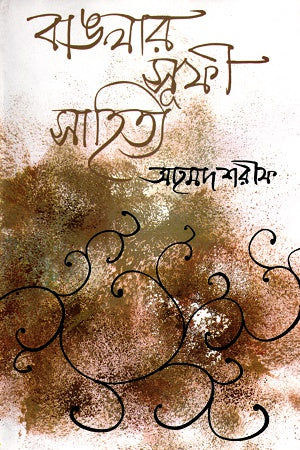 বাঙলার
সূফী
সাহিত্য
আহমদ শরীফ